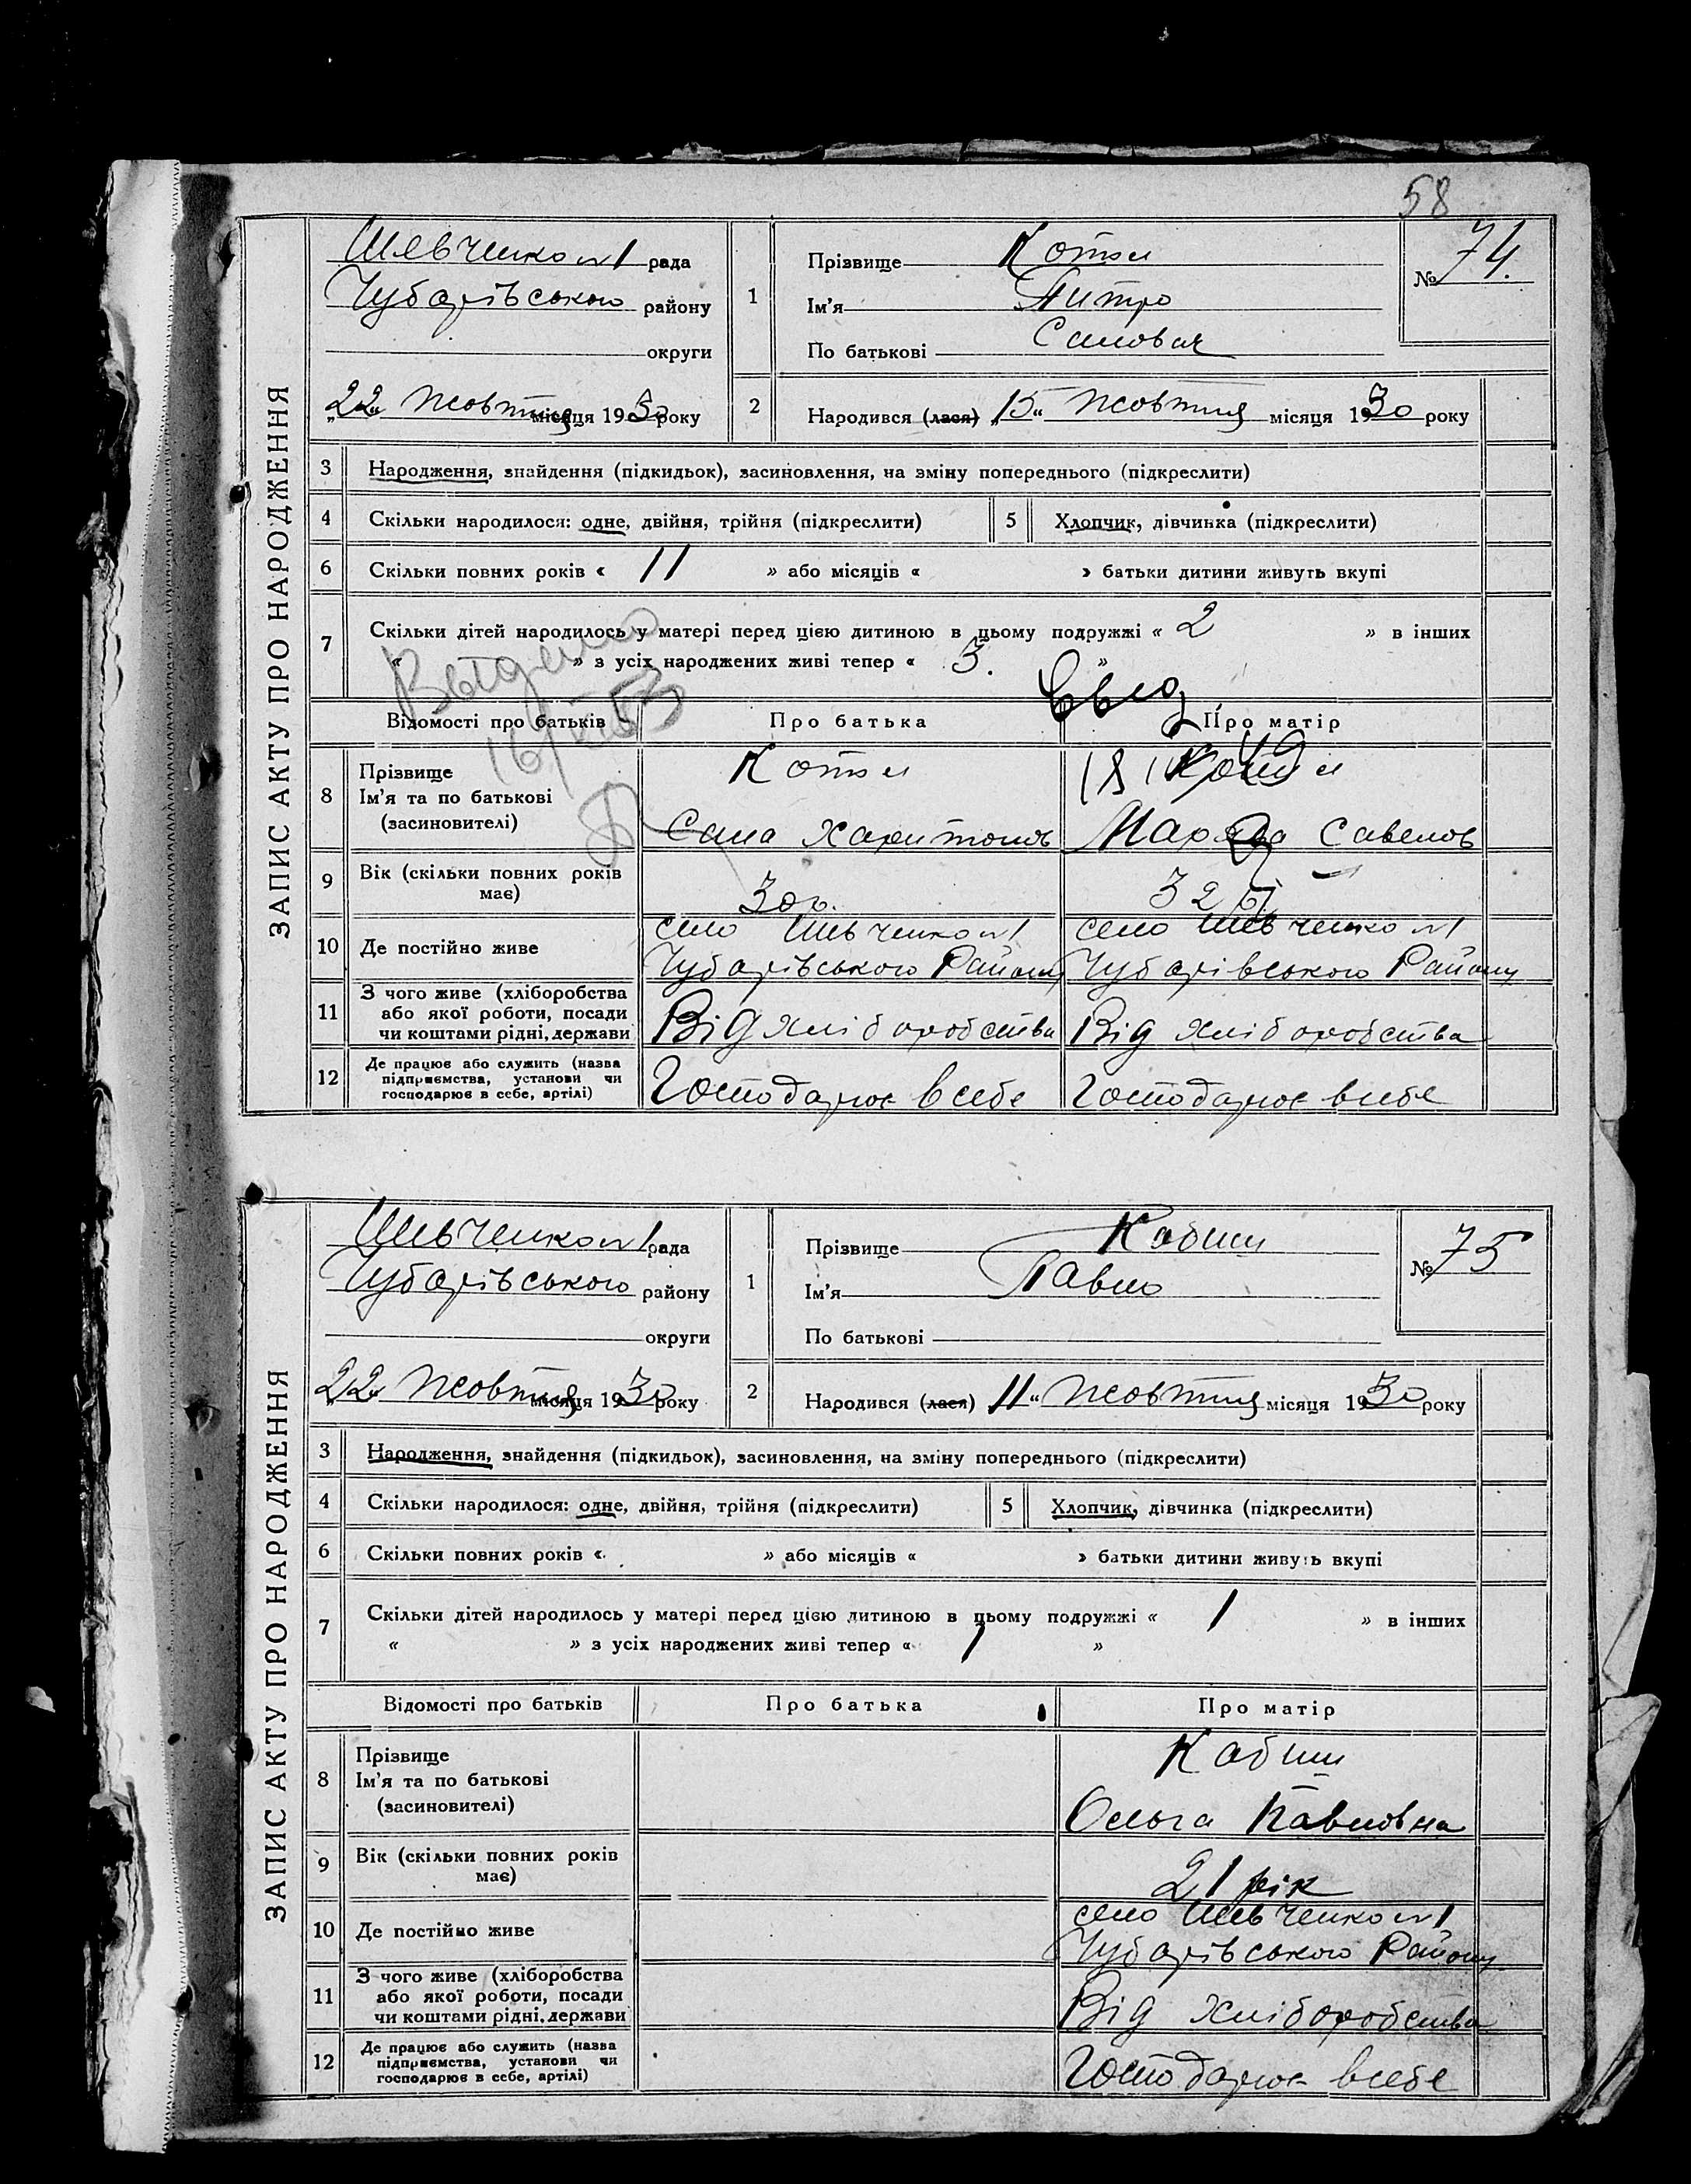 58
ЗАПИС АКТУ ПРО НАРОДЖЕННЯ
Шевченко №1 рада
Чубарівського району
округи
„22“ Жовтня місяця 1930 року
1
Прізвище
Ім'я
По батькові
№ 74.
2
Народився (лася) „15“ Жовтня місяця 1930 року
3 Народження, знайдення (підкидьок), засиновлення, на зміну попереднього (підкреслити)
4 Скільки народилося: одне, двійня, трійня (підкреслити) 5 Хлопчик, дівчинка (підкреслити)
6 Скільки повних років « 11 » або місяців « » батьки дитини живуть вкупі
7 Скільки дітей народилось у матері перед цією дитиною в цьому подружжі « 2 » в інших
« » з усіх народжених живі тепер « 3. »
Відомості про батьків Про батька Про матір
8 Прізвище
Ім'я та по батькові
(засиновителі)
Харитонов Савелов
9 Вік (скільки повних років має) 30 р. 32 р.
10 Де постійно живе
село Шевченко №1 село Шевченко №1
Чубарівського Району Чубарівського Району
11 З чого живе (хліборобства
або якої роботи, посади
чи коштами рідні, держави
Від хліборобства Від хліборобства
12 Де працює або служить (назва
підприємства, установи чи
господарює в себе, артілі)
Господарює в себе Господарює в себе
ЗАПИС АКТУ ПРО НАРОДЖЕННЯ
Шевченко №1 рада
Чубарівського району
округи
„22“ Жовтня місяця 1930 року
1
Прізвище
Ім'я Павло
По батькові
№ 75
2
Народився (лася) „11“ Жовтня місяця 1930 року
3 Народження, знайдення (підкидьок), засиновлення, на зміну попереднього (підкреслити)
4 Скільки народилося: одне, двійня, трійня (підкреслити) 5 Хлопчик, дівчинка (підкреслити)
6 Скільки повних років « » або місяців « » батьки дитини живуть вкупі
7 Скільки дітей народилось у матері перед цією дитиною в цьому подружжі « 1 » в інших
« » з усіх народжених живі тепер « 1 »
Відомості про батьків Про батька Про матір
8 Прізвище
Ім'я та по батькові
(засиновителі)
Ольга Павловна
9 Вік (скільки повних років має) 21 рік
10 Де постійно живе
село Шевченко №1
Чубарівського Району
11 З чого живе (хліборобства
або якої роботи, посади
чи коштами рідні, держави
Від хліборобства
12 Де працює або служить (назва
підприємства, установи чи
господарює в себе, артілі)
Господарює в себе